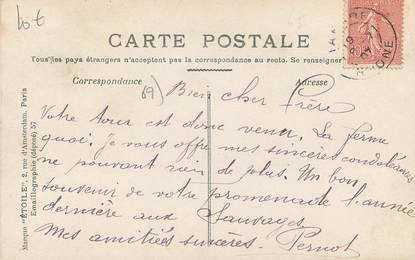 lot 6
CARTE POSTALE
Tous les pays étrangers n'acceptent pas la correspondance au recto. Se renseigner
Correspondance
Adresse
69)
Bien cher Frère
Votre tour est donc venu. La ferme
quoi. Je vous offre mes sincères condoléances
ne pouvant rien de plus. Un bon
souvenir de votre promenade l'année
dernière aux Sauvages.
Mes amitiés sincères. Pernot
Marque "ÉTOILE", 2, rue d'Amsterdam, Paris
Emaillographie (déposé) 57
RHONE